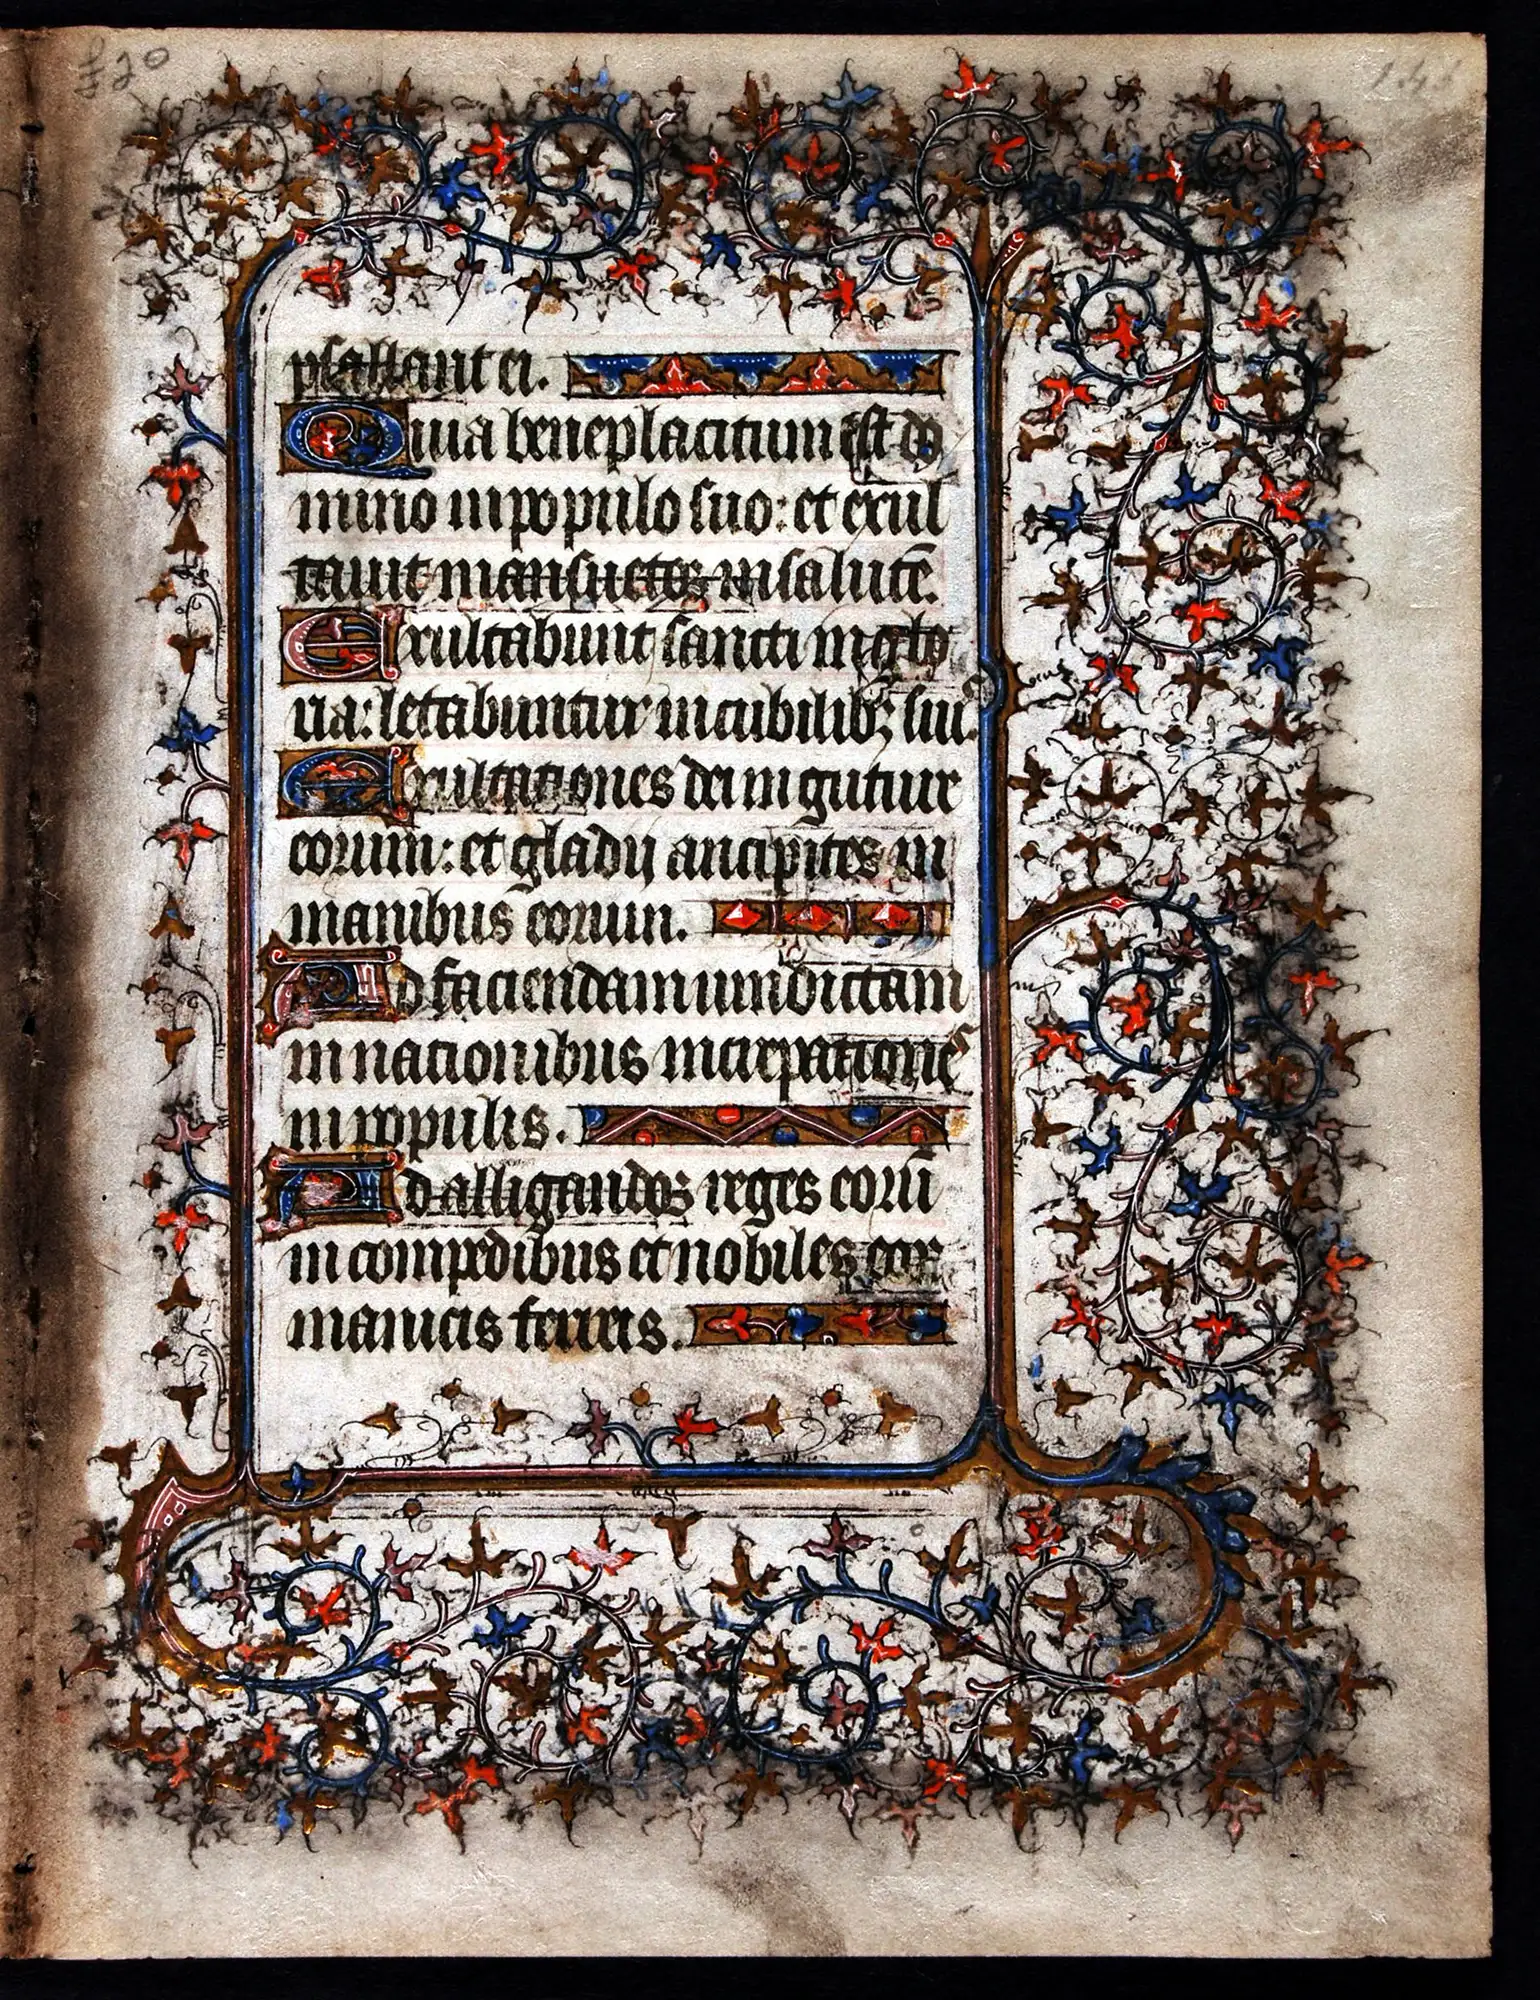 £20
psallant ei.
Quia beneplacitum est do
mino in populo suo: et exul
tavit mansuetos in salutē.
Exultabunt sancti in glo
ria: letabuntur in cubilibꝫ suis.
Exultationes dei in gutture
eorum: et gladij ancipites in
manibus eorum.
Ad faciendam vindictam
in nationibus increpationes
in populis.
Ad alligandos reges eorū
in compedibus et nobiles eoꝝ
manicis ferreis.